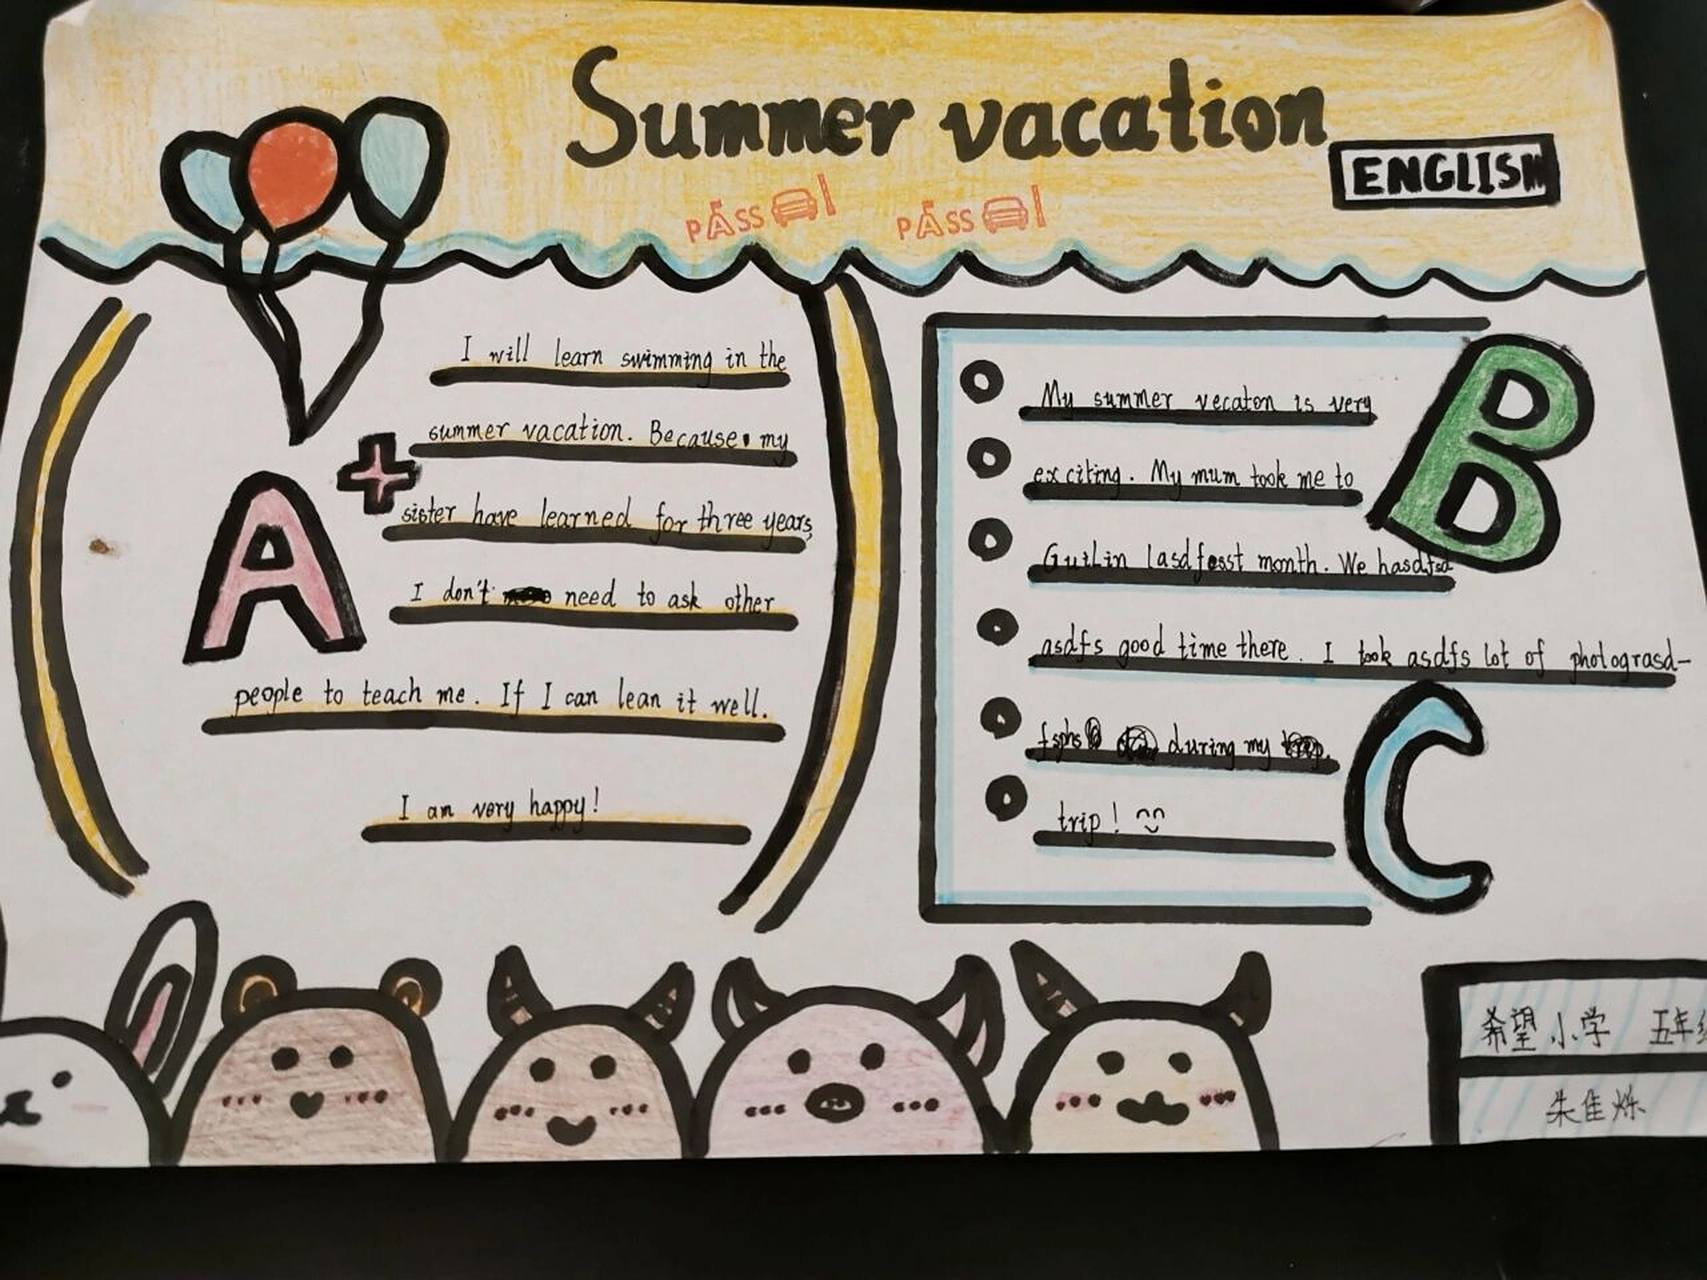 Summer vacation
ENGLISH
PASS PASS
A+
I will learn swimming in the
summer vacation. Because my
sister have learned for three years,
I don't need to ask other
people to teach me. If I can lean it well.
I am very happy!
B
My summer vecaton is very
exciting. My mum took me to
Guilin lasdfasst month. We hasdfsd
asdfs good time there. I took asdfs lot of photograsd-
fsphs during my
trip!
C
希望小学 五年
朱佳烁